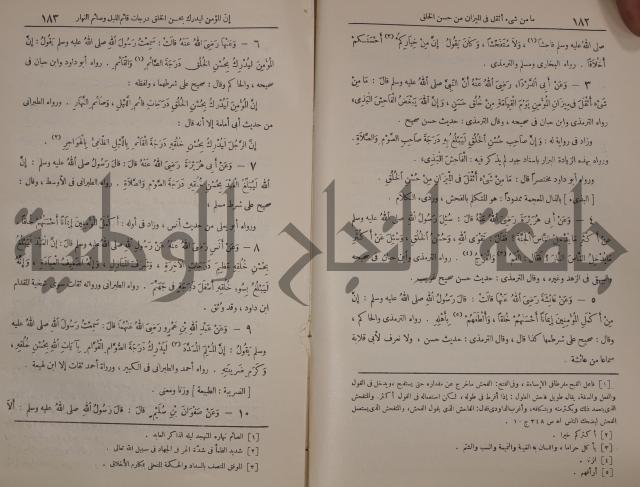 ١٨٢ ما من شيء أثقل في الميزان من حسن الخلق
صلى الله عليه وسلم فاحشا (١) ، ولا متفحشا ، وكان يقول : إن من خياركم (٢) أحسنكم
أخلاقا . رواه البخارى ومسلم والترمذى .
٣ — وعن أبى الدرداء رضى الله عنه أن النبي صلى الله عليه وسلم قال : ما من
شىء أثقل فى ميزان المؤمن يوم القيامة من خلق حسن ، وإن الله يبغض الفاحش البذىء .
رواه الترمذى وابن حبان فى صحيحه ، وقال الترمذى : حديث حسن صحيح .
وزاد فى رواية له : وإن صاحب حسن الخلق ليبلغ به درجة صاحب الصوم والصلاة .
ورواه بهذه الزيادة البزار بإسناد جيد لم يذكر فيه : الفاحش البذىء .
ورواه أبو داود مختصرا قال : ما من شىء أثقل فى الميزان من حسن الخلق .
[ البذىء ] بالذال المعجمة ممدودا : هو المتكلم بالفحش ، وردىء الكلام .
٤ — وعن أبى هريرة رضى الله عنه قال : سئل رسول الله صلى الله عليه وسلم
عن أكثر ما يدخل الناس الجنة ؟ فقال : تقوى الله ، وحسن الخلق ، وسئل عن أكثر
ما يدخل الناس النار ؟ فقال : الفم والفرج . رواه الترمذى وابن حبان فى صحيحه
والبيهقى فى الزهد وغيره ، وقال الترمذى : حديث حسن صحيح غريب .
٥ — وعن عائشة رضى الله عنها قالت : قال رسول الله صلى الله عليه وسلم : إن
من أكمل المؤمنين إيمانا أحسنهم خلقا ، وألطفهم (٥) بأهله . رواه الترمذى والحاكم ،
وقال : صحيح على شرطهما كذا قال ، وقال الترمذى : حديث حسن ، ولا نعرف لأبى قلابة
سماعا من عائشة .
[٢] أكثركم خيرا .
[٥] أرأفهم .
إن المؤمن ليدرك بحسن الخلق درجات قائم الليل وصائم النهار ١٨٣
٦ — وعنها رضى الله عنها قالت : سمعت رسول الله صلى الله عليه وسلم يقول : إن
المؤمن ليدرك بحسن الخلق درجة الصائم (١) والقائم . رواه أبو داود وابن حبان فى
صحيحه ، والحاكم وقال : صحيح على شرطهما ، ولفظه :
إن المؤمن ليدرك بحسن الخلق درجات قائم الليل ، وصائم النهار . ورواه الطبرانى
من حديث أبى أمامة إلا أنه قال :
إن الرجل ليدرك بحسن خلقه درجة القائم بالليل الظامئ بالهواجر (٢) .
٧ — وعن أبى هريرة رضى الله عنه قال : قال رسول الله صلى الله عليه وسلم : إن
الله ليبلغ العبد بحسن خلقه درجة الصوم والصلاة . رواه الطبرانى فى الأوسط ، وقال :
صحيح على شرط مسلم ،
ورواه أبو يعلى من حديث أنس ، وزاد فى أوله : أكمل المؤمنين إيمانا أحسنهم خلقا .
٨ — وعن أنس رضى الله عنه عن رسول الله صلى الله عليه وسلم قال : إن العبد ليبلغ
بحسن خلقه عظيم درجات الآخرة ، وشرف المنازل ، وإنه لضعيف العبادة ، وإنه
ليبلغ بسوء خلقه أسفل درجة فى جهنم . رواه الطبرانى ورواته ثقات سوى شيخه المقدام
ابن داود ، وقد وثق .
٩ — وعن عبد الله بن عمرو رضى الله عنهما قال : سمعت رسول الله صلى الله عليه
وسلم يقول : إن المسلم المسدد (٣) ليدرك درجة الصوام القوام بآيات الله بحسن خلقه ،
وكرم ضريبته . رواه أحمد والطبرانى فى الكبير ، ورواة أحمد ثقات إلا ابن لهيعة .
[ الضريبة : الطبيعة ] وزنا ومعنى .
١٠ — وعن صفوان بن سليم قال : قال رسول الله صلى الله عليه وسلم : ألا
[١] الصائم نهاره المتهجد ليله الذاكر العابد .
[٢] شديد الظمأ فى شدة الحر فى الجهاد فى سبيل الله تعالى .
[٣] الموفق المتصف بالسداد والحكمة المتحلى بمكارم الأخلاق .
جامعة النجاح الوطنية